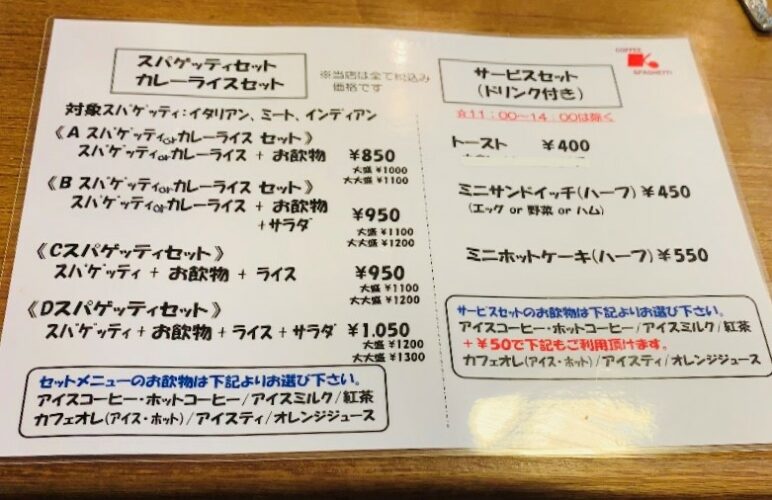 スパゲッティセット
カレーライスセット
※当店は全て税込み
価格です
対象スパゲッティ:イタリアン、ミート、インディアン
《A スパゲッティorカレーライス セット》
スパゲッティorカレーライス + お飲物 ¥850
大盛 ¥1000
大大盛 ¥1100
《B スパゲッティorカレーライス セット》
スパゲッティorカレーライス + お飲物
+サラダ ¥950
大盛 ¥1100
大大盛 ¥1200
《Cスパゲッティセット》
スパゲッティ + お飲物 + ライス ¥950
大盛 ¥1100
大大盛 ¥1200
《Dスパゲッティセット》
スパゲッティ + お飲物 + ライス + サラダ ¥1.050
大盛 ¥1200
大大盛 ¥1300
セットメニューのお飲物は下記よりお選び下さい。
アイスコーヒー・ホットコーヒー/アイスミルク/紅茶
カフェオレ(アイス・ホット)/アイスティ/オレンジジュース
COFFEE
K
SPAGHETTI
サービスセット
(ドリンク付き)
☆11:00〜14:00は除く
トースト ¥400
ミニサンドイッチ(ハーフ) ¥450
(エッグ or 野菜 or ハム)
ミニホットケーキ(ハーフ) ¥550
サービスセットのお飲物は下記よりお選び下さい。
アイスコーヒー・ホットコーヒー/アイスミルク/紅茶
+¥50で下記もご利用頂けます。
カフェオレ(アイス・ホット)/アイスティ/オレンジジュース